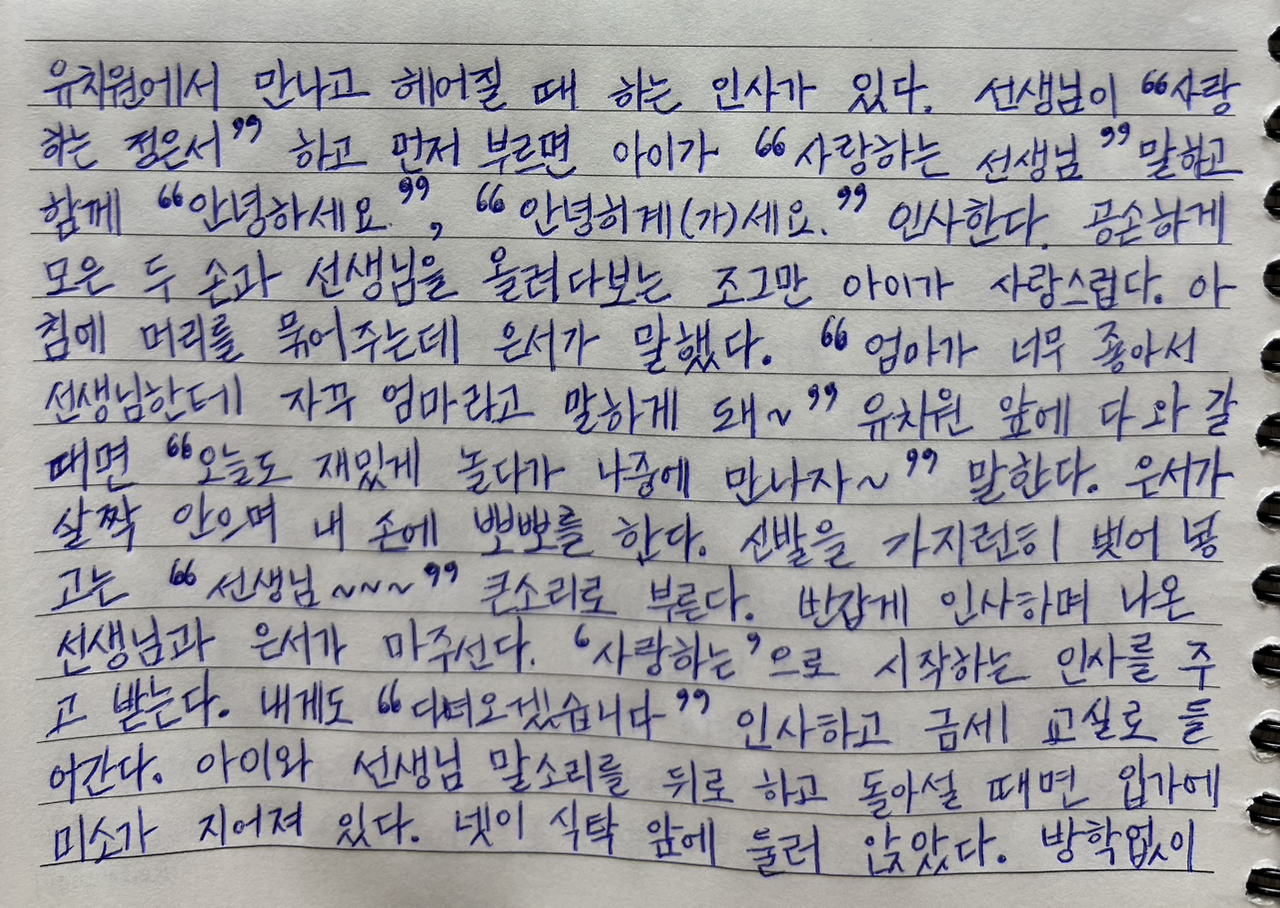 유치원에서 만나고 헤어질 때 하는 인사가 있다. 선생님이 “사랑
하는 정은서” 하고 먼저 부르면 아이가 “사랑하는 선생님” 말하고
함께 “안녕하세요.”, “안녕히계(가)세요.” 인사한다. 공손하게
모은 두 손과 선생님을 올려다보는 조그만 아이가 사랑스럽다. 아
침에 머리를 묶어주는데 은서가 말했다. “엄마가 너무 좋아서
선생님한테 자꾸 엄마라고 말하게 돼~” 유치원 앞에 다 와 갈
때면 “오늘도 재밌게 놀다가 나중에 만나자~” 말한다. 은서가
살짝 안으며 내 손에 뽀뽀를 한다. 신발을 가지런히 벗어 넣
고는 “선생님~~~” 큰소리로 부른다. 반갑게 인사하며 나온
선생님과 은서가 마주선다. ‘사랑하는’으로 시작하는 인사를 주
고 받는다. 내게도 “다녀오겠습니다” 인사하고 금세 교실로 들
어간다. 아이와 선생님 말소리를 뒤로 하고 돌아설 때면 입가에
미소가 지어져 있다. 넷이 식탁 앞에 둘러 앉았다. 방학없이